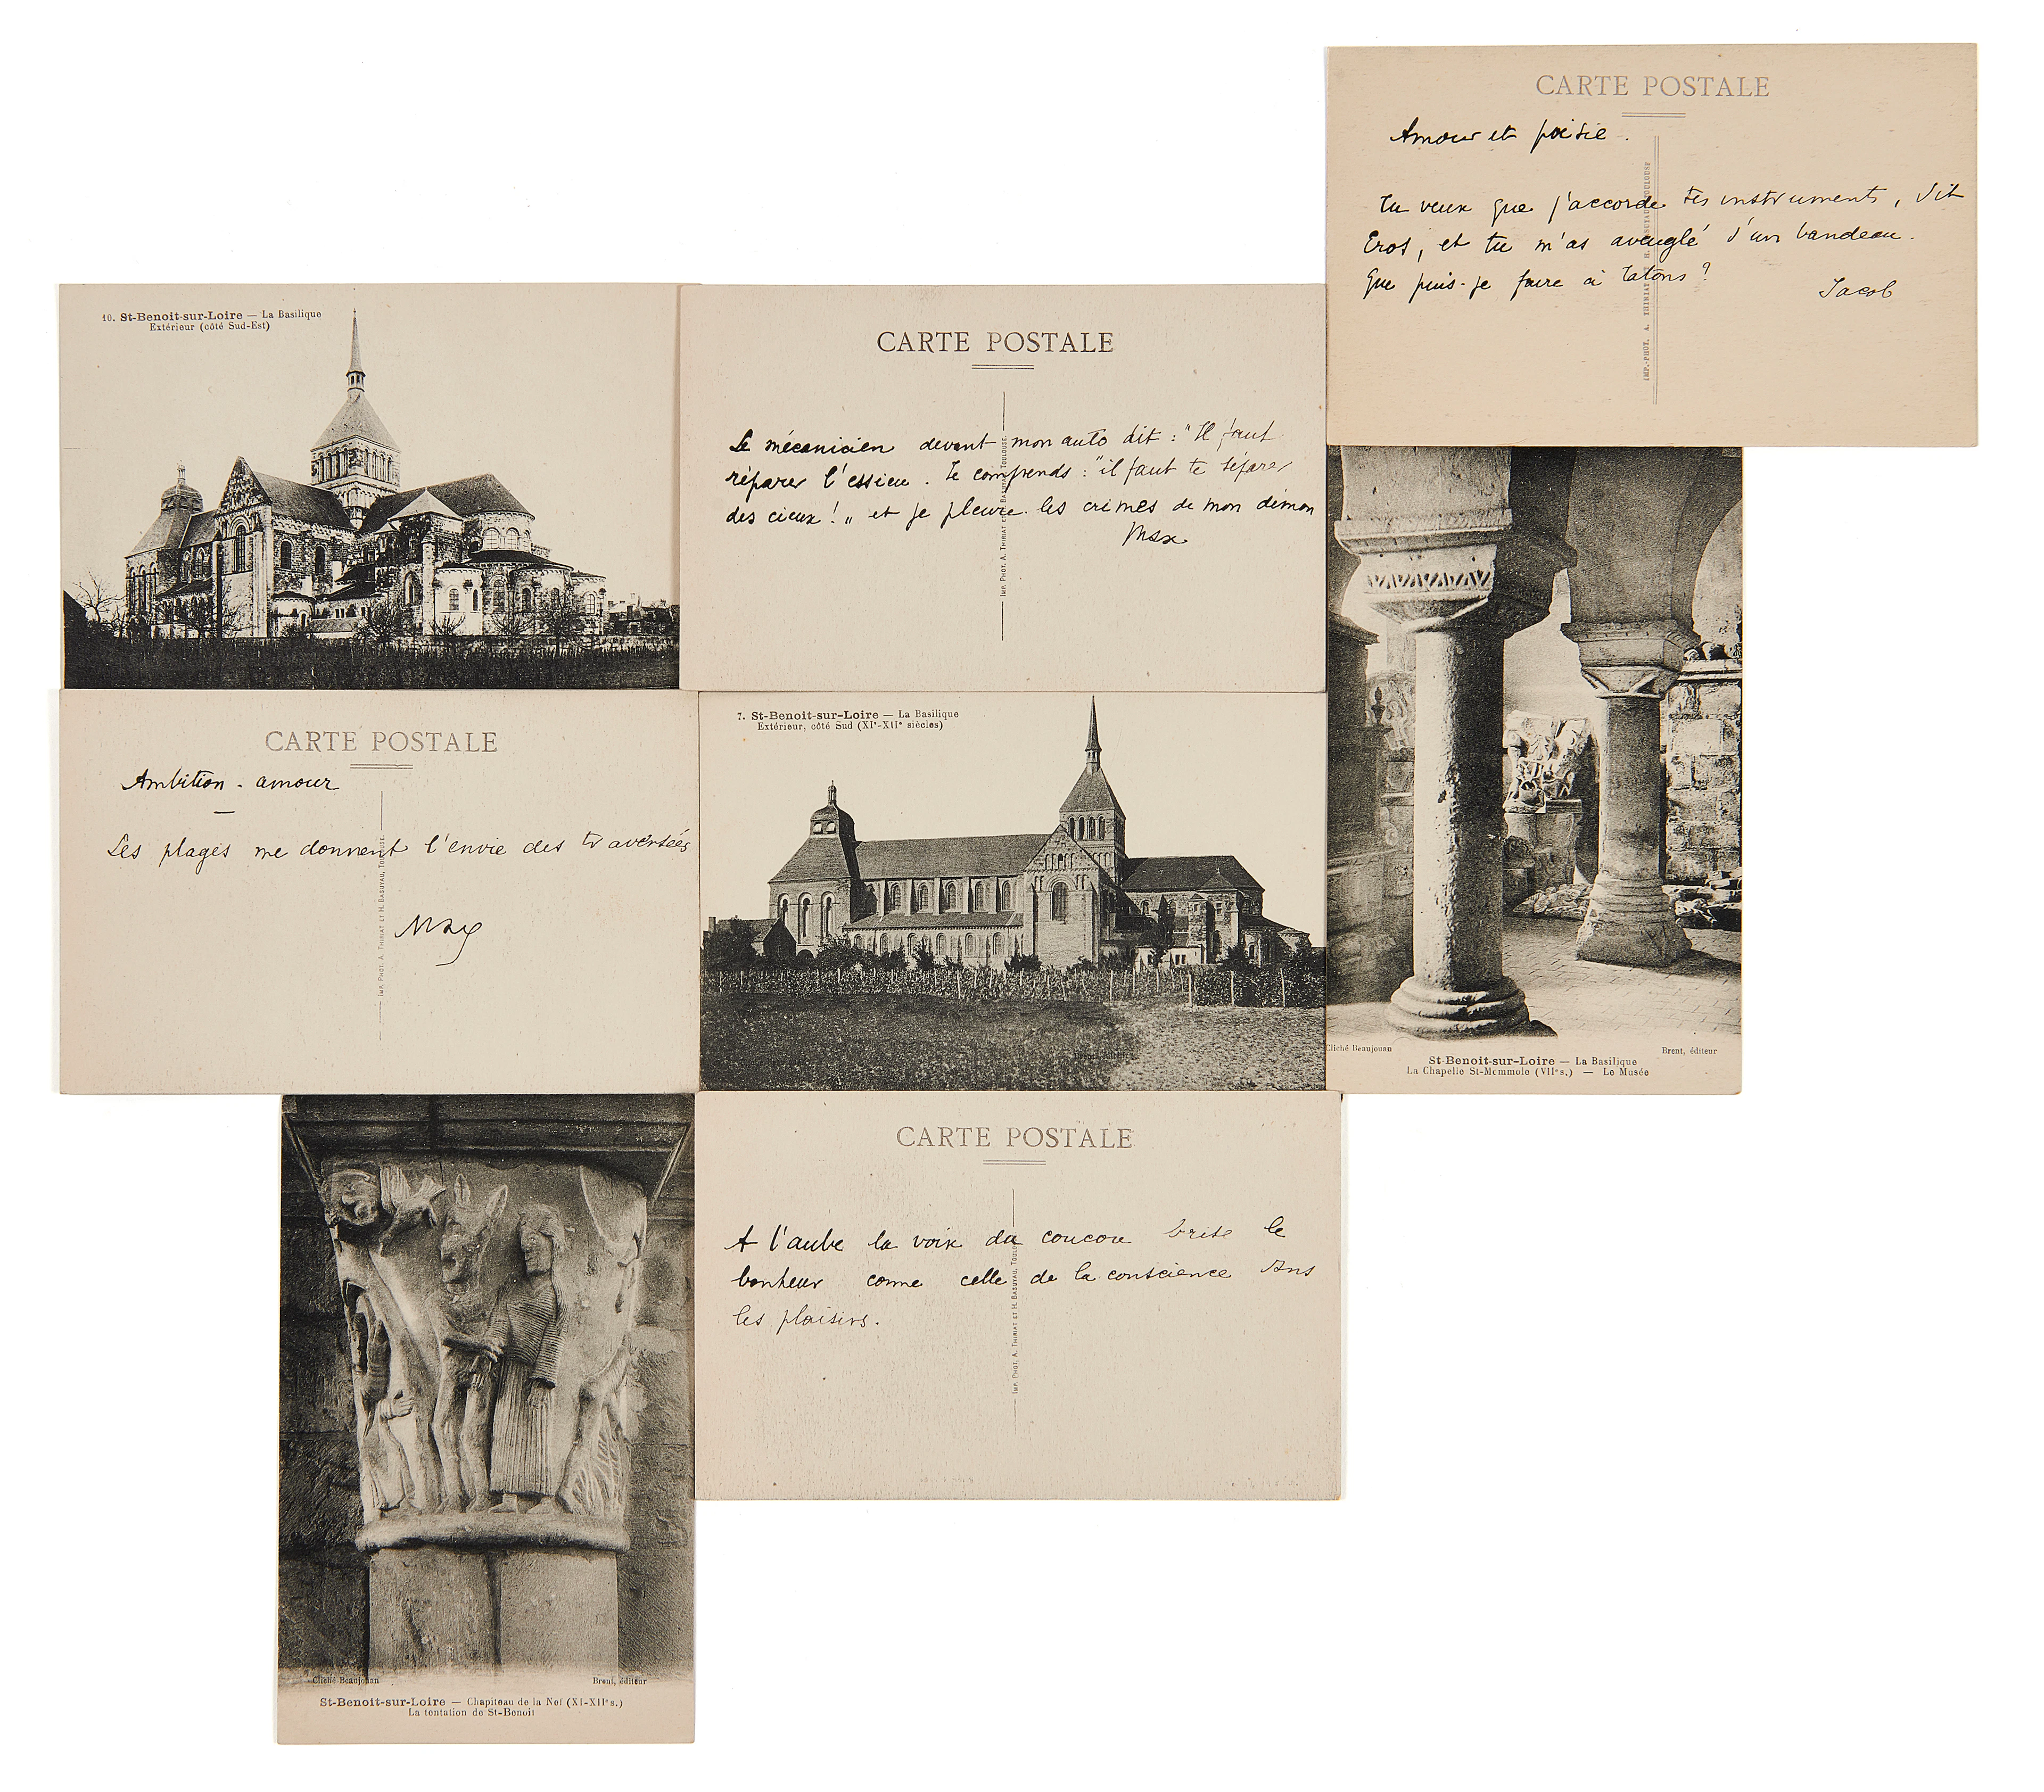 CARTE POSTALE
Amour et poésie.
Tu veux que j'accorde tes instruments, dit
Eros, et tu m'as aveuglé d'un bandeau.
Que puis-je faire à tatons ?
Jacob
10. St-Benoit-sur-Loire — La Basilique
Extérieur (côté Sud-Est)
CARTE POSTALE
Le mécanicien devant mon auto dit : "Il faut
réparer l'essieu. Je comprends : "il faut te séparer
des cieux ! „ et je pleure les crimes de mon démon
Max
IMP. PHOT. A. THIRIAT ET H. BASUYAU, TOULOUSE.
CARTE POSTALE
Ambition - amour
Les plages me donnent l'envie des traversées
Max
IMP. PHOT. A. THIRIAT ET H. BASUYAU, TOULOUSE.
7. St-Benoit-sur-Loire — La Basilique
Extérieur, côté Sud (XIe-XIIe siècles)
Cliché Beaujouan
Brent, éditeur
St-Benoit-sur-Loire — La Basilique
La Chapelle St-Mommole (VIIe s.) — Le Musée
CARTE POSTALE
A l'aube la voix du coucou brise le
bonheur comme celle de la conscience dans
les plaisirs.
IMP. PHOT. A. THIRIAT ET H. BASUYAU, TOULOUSE
Cliché Beaujouan
Brent, éditeur
St-Benoit-sur-Loire — Chapiteau de la Nef (XI-XIIe s.)
La tentation de St-Benoit